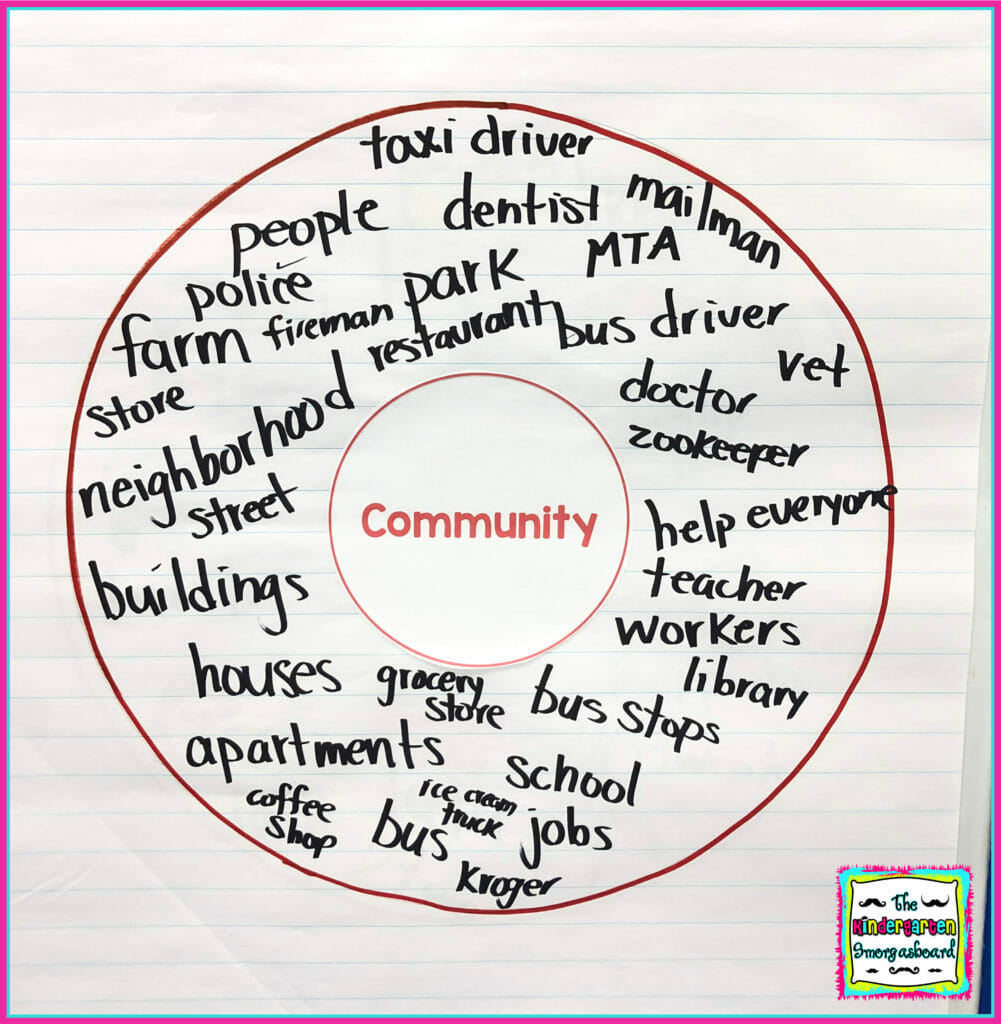 taxi driver
people
dentist
mailman
MTA
police
park
farm
fireman
restaurant
bus driver
vet
store
doctor
neighborhood
zookeeper
street
help everyone
Community
buildings
teacher
workers
houses
grocery
store
library
bus stops
apartments
school
coffee
shop
ice cream
truck
bus
jobs
Kroger
The
Kindergarten
Smorgasboard